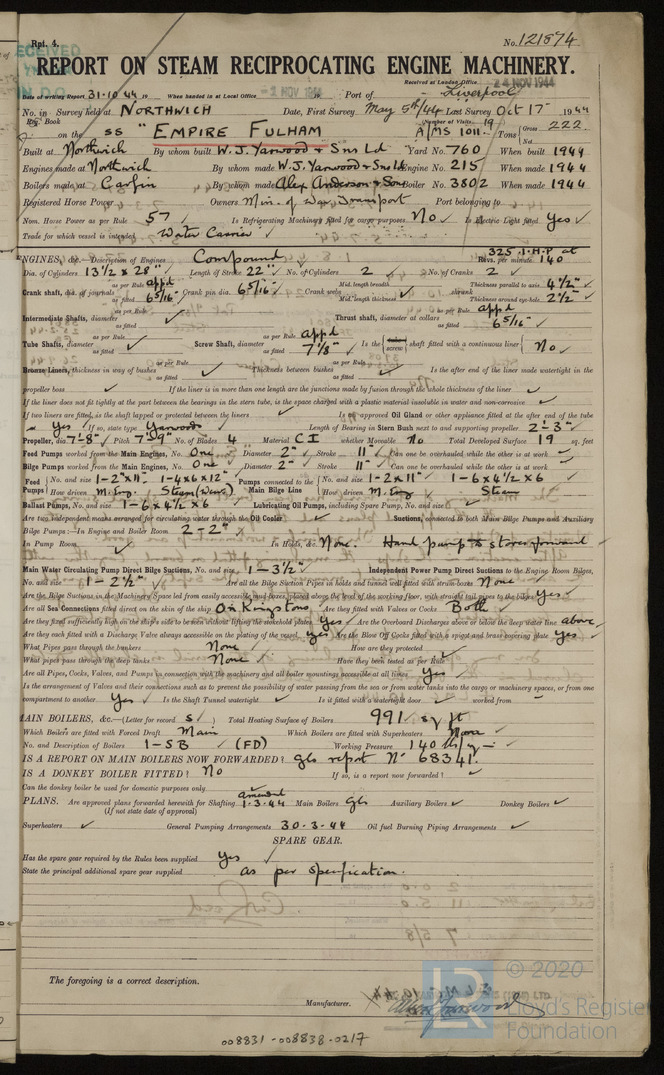 Rpt. 4.
No. 121574
RECEIVED
24 NOV 1944
REPORT ON STEAM RECIPROCATING ENGINE MACHINERY.
Received at London Office
Date of writing Report 31.10.44 19 When handed in at Local Office - 2 NOV 1944 19 Port of Liverpool
No. in Survey held at NORTHWICH Date, First Survey May 5th/44 Last Survey Oct 17 1944
Reg. Book (Number of Visits 19
on the SS "EMPIRE FULHAM Tons Gross 222
Net
Built at Northwich By whom built W.J. Yarwood & Sns Ld Yard No. 760 When built 1944
Engines made at Northwich By whom made W.J. Yarwood & Sns Ld Engine No. 215 When made 1944
Boilers made at Carfin By whom made Alex Anderson & Sons Boiler No. 3502 When made 1944
Registered Horse Power Owners Min. of War Transport Port belonging to
Nom. Horse Power as per Rule 57 Is Refrigerating Machinery fitted for cargo purposes No Is Electric Light fitted Yes
Trade for which vessel is intended Water Carrier
ENGINES, &c.—Description of Engines Compound 325 I.H.P at Revs. per minute 140
Dia. of Cylinders 13 1/2 x 28" Length of Stroke 22" No. of Cylinders 2 No. of Cranks 2
Crank shaft, dia. of journals as per Rule appd as fitted 6 5/16" Crank pin dia. 6 5/16" Crank webs Mid. length breadth Mid. length thickness shrunk Thickness parallel to axis 4 1/2" Thickness around eye-hole 2 1/2"
Intermediate Shafts, diameter as per Rule as fitted Thrust shaft, diameter at collars as per Rule appd as fitted 6 5/16"
Tube Shafts, diameter as per Rule as fitted Screw Shaft, diameter as per Rule appd as fitted 7 1/8" Is the screw shaft fitted with a continuous liner No
Bronze Liners, thickness in way of bushes as per Rule as fitted Thickness between bushes as per Rule as fitted Is the after end of the liner made watertight in the
propeller boss If the liner is in more than one length are the junctions made by fusion through the whole thickness of the liner
If the liner does not fit tightly at the part between the bearings in the stern tube, is the space charged with a plastic material insoluble in water and non-corrosive
If two liners are fitted, is the shaft lapped or protected between the liners Is an approved Oil Gland or other appliance fitted at the after end of the tube
Yes If so, state type Yarwoods Length of Bearing in Stern Bush next to and supporting propeller 2'-3"
Propeller, dia. 7'-8" Pitch 7'-9" No. of Blades 4 Material C I whether Moveable No Total Developed Surface 19 sq. feet
Feed Pumps worked from the Main Engines, No. One Diameter 2" Stroke 11" Can one be overhauled while the other is at work
Bilge Pumps worked from the Main Engines, No. One Diameter 2" Stroke 11" Can one be overhauled while the other is at work
Feed Pumps No. and size 1-2"x11" 1-4x6x12" Pumps connected to the Main Bilge Line No. and size 1-2"x11" 1-6x4 1/2x6
How driven M. Eng. Steam (Weir) How driven M. Eng Steam
Ballast Pumps, No. and size 1-6x4 1/2x6 Lubricating Oil Pumps, including Spare Pump, No. and size
Are two independent means arranged for circulating water through the Oil Cooler Suctions, connected to both Main Bilge Pumps and Auxiliary
Bilge Pumps :—In Engine and Boiler Room 2-2"
In Pump Room In Holds, &c. None. Hand pump to stores forward
Main Water Circulating Pump Direct Bilge Suctions, No. and size 1-3 1/2" Independent Power Pump Direct Suctions to the Engine Room Bilges,
No. and size 1-2 1/2" Are all the Bilge Suction Pipes in holds and tunnel well fitted with strum-boxes None
Are the Bilge Suctions in the Machinery Space led from easily accessible mud boxes, placed above the level of the working floor, with straight tail pipes to the bilges Yes
Are all Sea Connections fitted direct on the skin of the ship On Kingstons Are they fitted with Valves or Cocks Both
Are they fixed sufficiently high on the ship's side to be seen without lifting the stokehold plates Yes Are the Overboard Discharges above or below the deep water line above
Are they each fitted with a Discharge Valve always accessible on the plating of the vessel yes Are the Blow Off Cocks fitted with a spigot and brass covering plate yes
What Pipes pass through the bunkers None How are they protected
What pipes pass through the deep tanks None Have they been tested as per Rule
Are all Pipes, Cocks, Valves, and Pumps in connection with the machinery and all boiler mountings accessible at all times Yes
Is the arrangement of Valves and their connections such as to prevent the possibility of water passing from the sea or from water tanks into the cargo or machinery spaces, or from one
compartment to another Yes Is the Shaft Tunnel watertight Is it fitted with a watertight door worked from
MAIN BOILERS, &c.—(Letter for record S) Total Heating Surface of Boilers 991 sq ft
Which Boilers are fitted with Forced Draft Main Which Boilers are fitted with Superheaters None
No. and Description of Boilers 1-SB (FD) Working Pressure 140 lb/sq in
IS A REPORT ON MAIN BOILERS NOW FORWARDED? Gls report No 68341.
IS A DONKEY BOILER FITTED? No If so, is a report now forwarded?
Can the donkey boiler be used for domestic purposes only
PLANS. Are approved plans forwarded herewith for Shafting amended 1.3.44 Main Boilers Gls Auxiliary Boilers Donkey Boilers
(If not state date of approval)
Superheaters General Pumping Arrangements 30.3.44 Oil fuel Burning Piping Arrangements
SPARE GEAR.
Has the spare gear required by the Rules been supplied Yes
State the principal additional spare gear supplied as per specification.
The foregoing is a correct description.
Manufacturer.
© 2020
Lloyd's Register
Foundation
008831-008838-0217